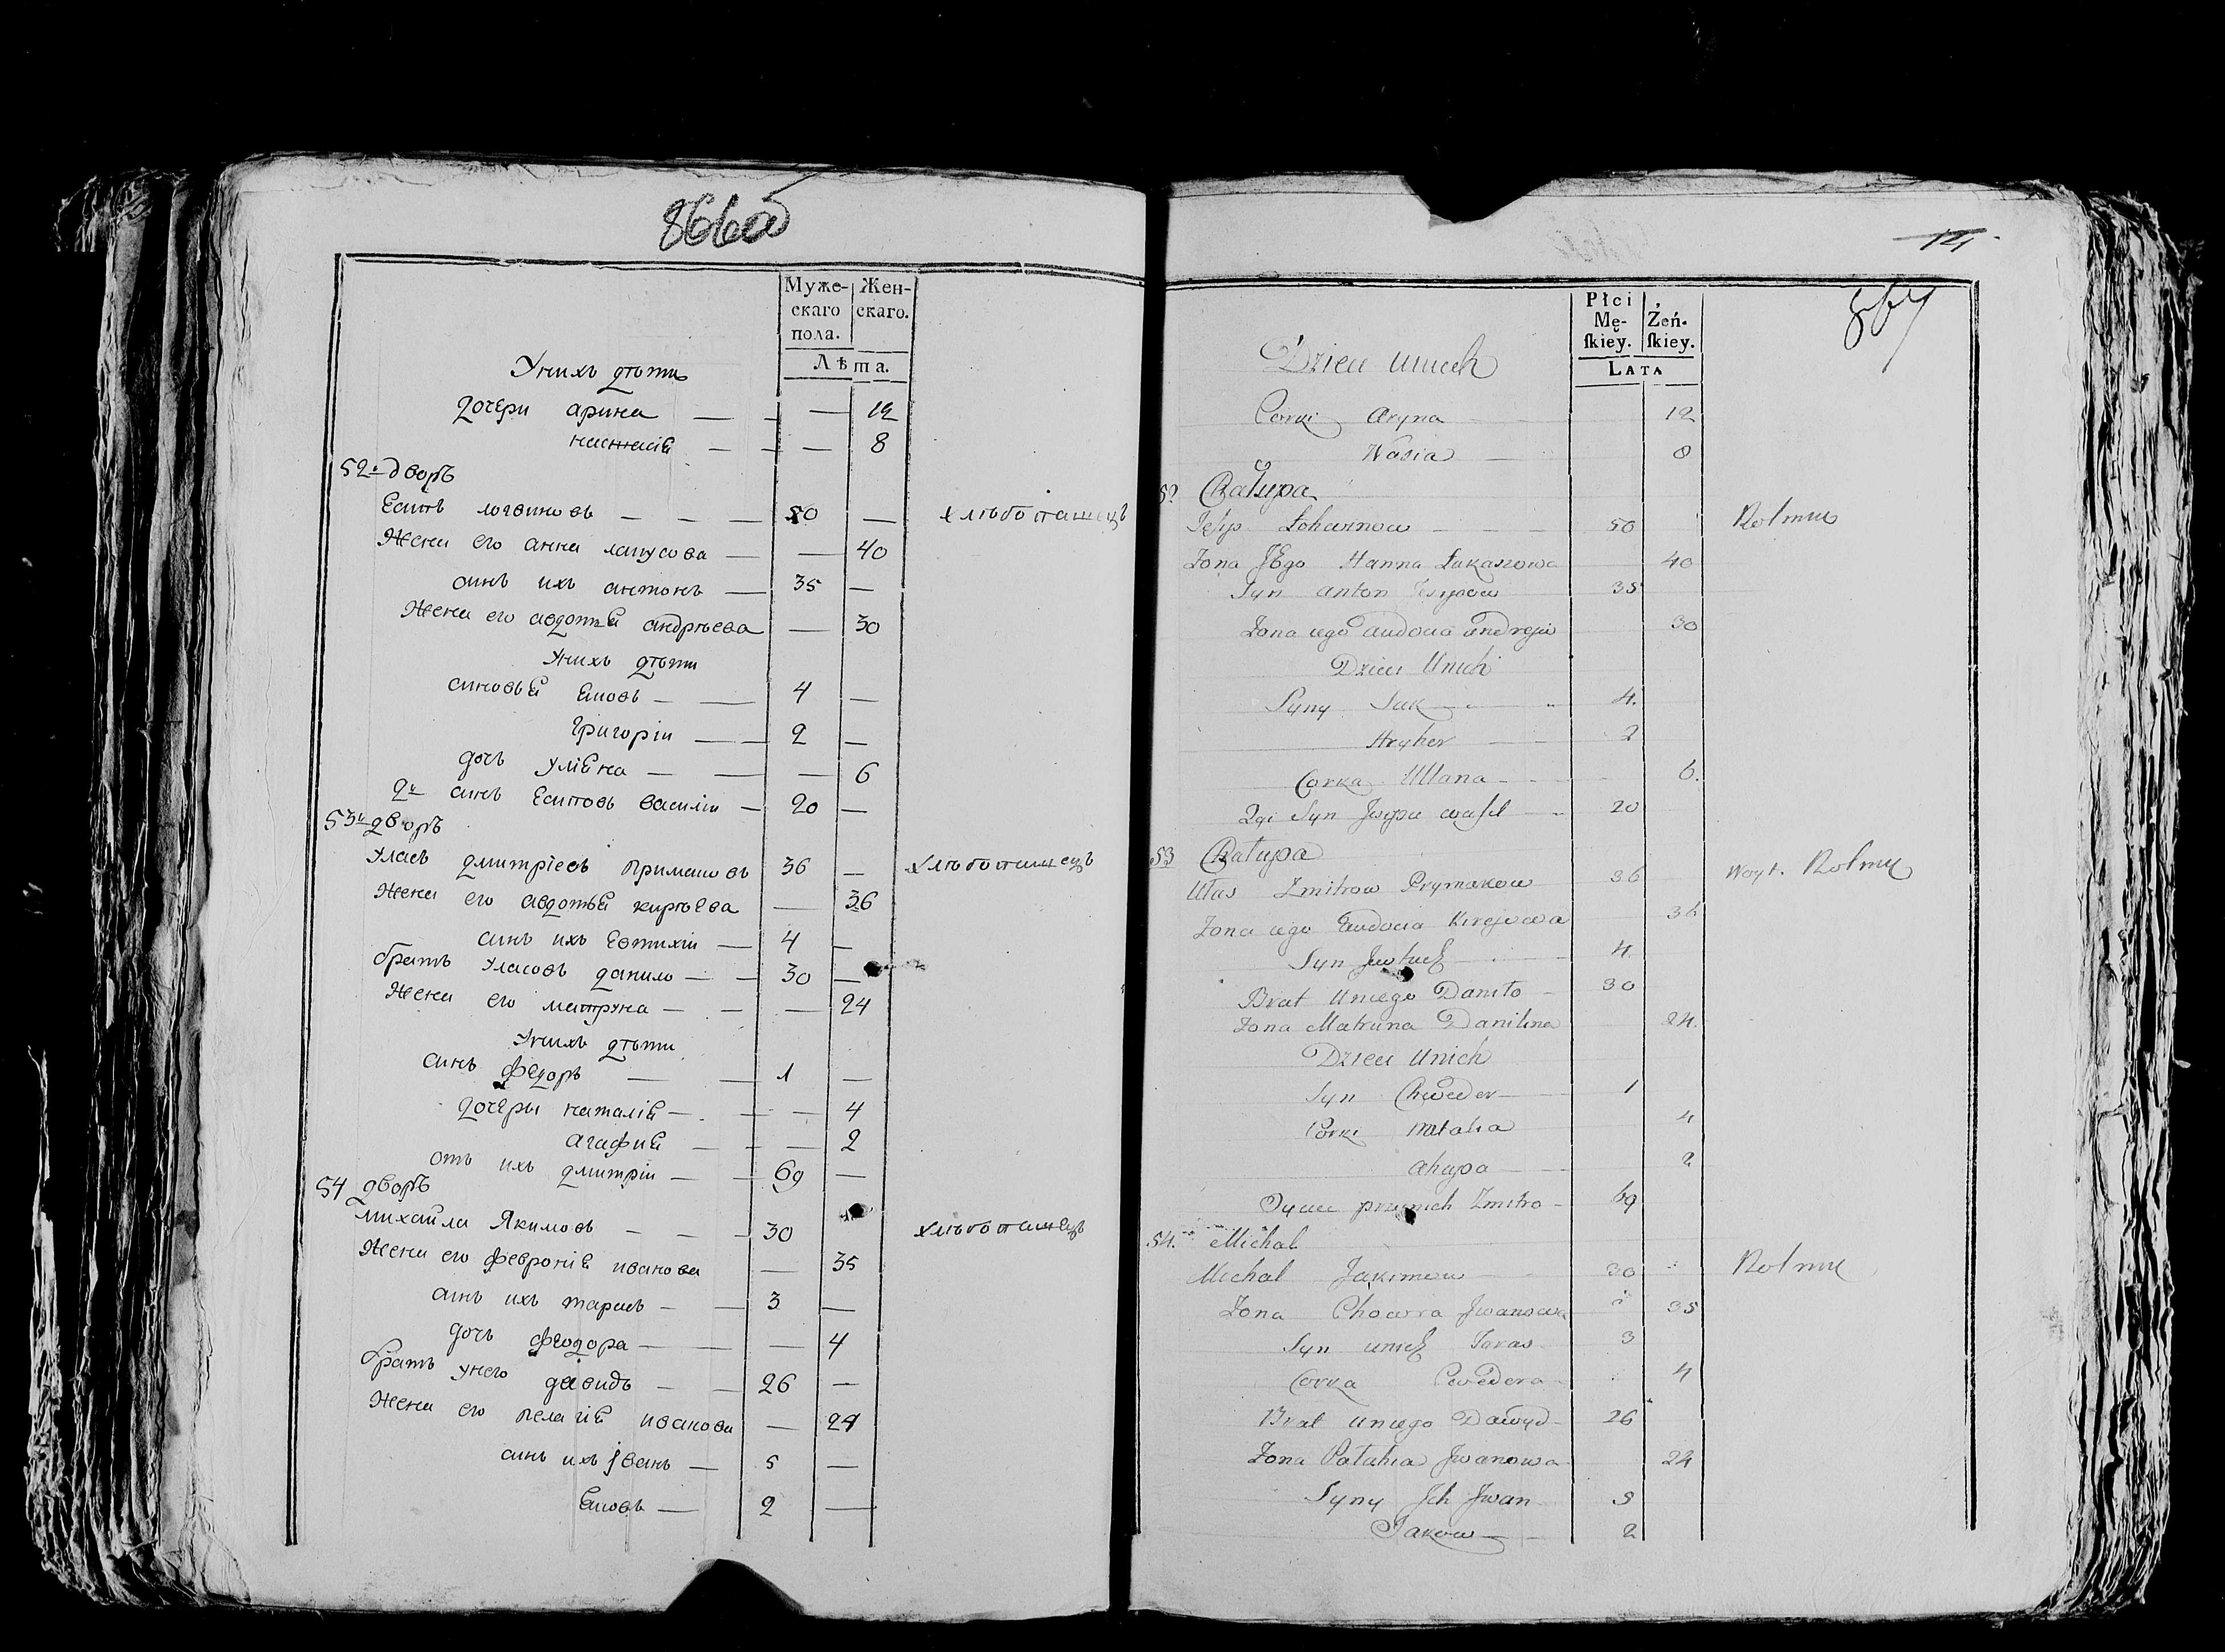 866об
Муже-
скаго
пола.
Жен-
скаго.
Лѣта.
У нихъ дѣти
дочери арина — — — 12
настасiя — — — 8
52й дворъ
Есипъ логвиновъ — — — 50 — хлѣбопашецъ
Жена его анна лапусова — — 40
синъ ихъ антонъ — 35 —
Жена его авдотья андрѣева — 30
У нихъ дѣти
синовья Яковъ — — 4 —
Григорiи — — 2 —
дочь улiяна — — — 6
2й синъ Есиповъ василiи — 20 —
53й дворъ
Уласъ дмитрiевъ Примаковъ 36 — хлѣбопашецъ
Жена его авдотья кирѣева — 36
синъ ихъ Евтихiи — 4 —
братъ уласовъ данило — — 30 —
Жена его матруна — — — 24
У нихъ дѣти
синъ Федоръ — — 1 —
дочеры наталiя — — — 4
агафия — — — 2
отъ ихъ дмитрiи — — 69 —
54 дворъ
михаила Якимовъ — — — 30 хлѣбопашецъ
Жена его февронiя иванова — 35
синъ ихъ тарасъ — — 3 —
дочь феодора — — — 4
братъ унего давидъ — — 26 —
Жена его пелагiя иванова — 24
синъ ихъ Iванъ — 5 —
Яковъ — 2 —
14
867
Płci
Mę-
ſkiey.
Żeń-
ſkiey.
LATA
Dzieci unich
Corki Aryna 12
Nasia — 8
52 Chałupa
Jesip Łohwinow — — — 50 Rolnik
Zona JEgo Hanna Łukaszowa 40
Syn anton Jesipow 35
Zona iego Audocia andreja 30
Dzieci Unich
Syny Jak — 4.
Hryhor — — 2
Corka Ullana — — 6.
2gi Syn Jesypa wasil — 20
53 Chałupa
Ułas Zmitrow Prymakow 36 Woyt. Rolnik
Zona iego Audocia Kirejowa 36
Syn Jewtuch — 4
Brat Uniego Daniło — 30
Zona Matruna Daniłina 24.
Dzieci Unich
Syn Chweder — 1
Corki Natalia 4
ahapa — — 2
Oyciec przynich Zmitro — 69
54. Michal
Michal Jakimow — 30 Rolnik
Zona Chowra Jwanowa 35
Syn unich Taras 3
Corka Chwedora — 4
Brat uniego Dawyd — 26
Zona Palahia Jwanowa 24
Syny Jch Jwan 5
Jakow — 2